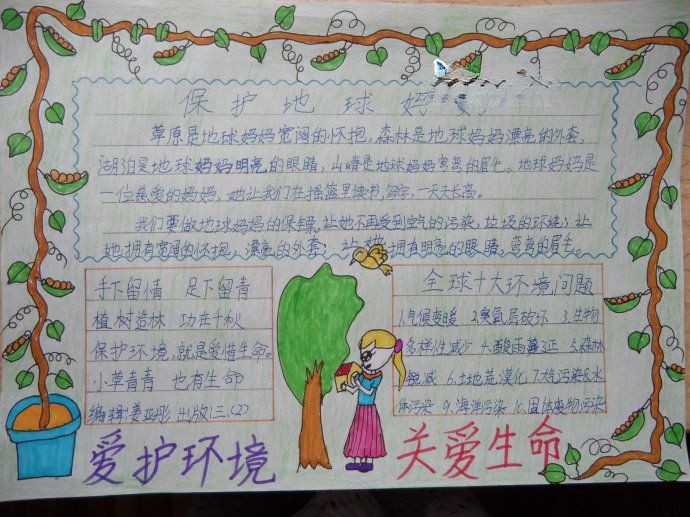 保护地球妈
草原是地球妈妈宽阔的怀抱,森林是地球妈妈漂亮的外套,
湖泊是地球妈妈明亮的眼睛,山峰是地球妈妈弯弯的眉毛。地球妈妈是
一位慈爱的妈妈,她让我们在摇篮里读书,写字,一天天长高。
我们要做地球妈妈的保镖,让她不再受到空气的污染,垃圾的环绕;让
她拥有宽阔的怀抱,漂亮的外套;让她拥有明亮的眼睛,弯弯的眉毛。
手下留情 足下留青
植树造林 功在千秋
保护环境 就是爱惜生命。
小草青青 也有生命
编辑:姜亚彤 出版:三.(2)
全球十大环境问题
1.气候变暖 2.臭氧层破坏 3.生物
多样性减少 4.酸雨蔓延 5.森林
锐减 6.土地荒漠化 7.大气污染 8.水
体污染 9.海洋污染 10.固体废物污染
爱护环境 关爱生命